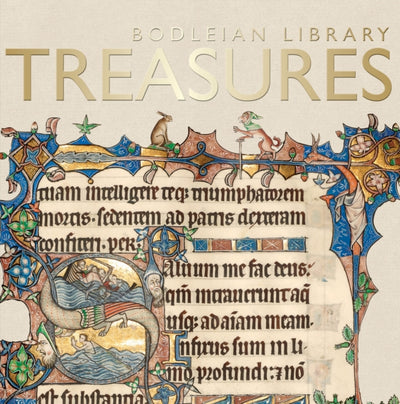 BODLEIAN LIBRARY
TREASURES
tuam intelligere teqꝫ triumphatorem
mortis · sedentem ad patris dexteram
confiteri . per.
Saluum me fac deus:
qm̄ intrauerunt aq̄
usqꝫ ad aīam meam.
Infixus sum in li
mo profundi: ⁊ nō
est substantia